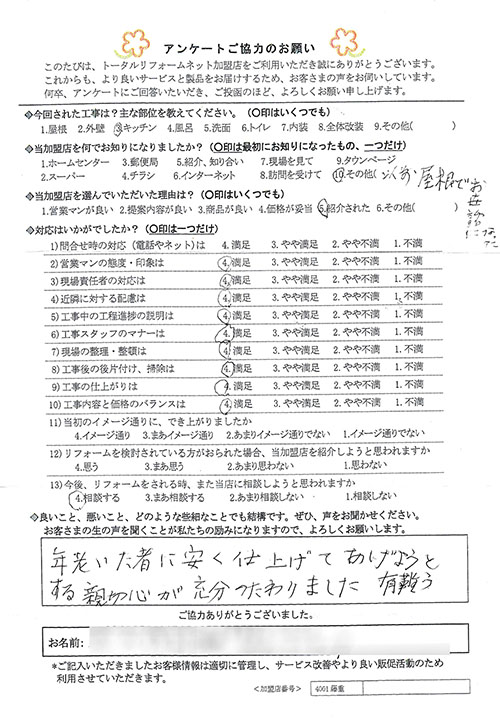 アンケートご協力のお願い
このたびは、トータルリフォームネット加盟店をご利用いただき誠にありがとうございます。
これからも、より良いサービスと製品をお届けするため、お客さまの声をお伺いしています。
何卒、アンケートにご回答いただき、ご投函のほど、よろしくお願い申し上げます。
◆今回された工事は?主な部位を教えてください。(〇印はいくつでも)
1.屋根 2.外壁 3.キッチン 4.風呂 5.洗面 6.トイレ 7.内装 8.全体改装 9.その他( )
◆当加盟店を何でお知りになりましたか?(〇印は最初にお知りになったもの、一つだけ)
1.ホームセンター 3.郵便局 5.紹介、知り合い 7.現場を見て 9.タウンページ
2.スーパー 4.チラシ 6.インターネット 8.訪問を受けて 10.その他(
屋根でお
世話になった
◆当加盟店を選んでいただいた理由は?(〇印はいくつでも)
1.営業マンが良い 2.提案内容が良い 3.商品が良い 4.価格が妥当 5.紹介された 6.その他( )
◆対応はいかがでしたか?(〇印は一つだけ)
1)問合せ時の対応(電話やネット)は 4.満足 3.やや満足 2.やや不満 1.不満
2)営業マンの態度・印象は 4.満足 3.やや満足 2.やや不満 1.不満
3)現場責任者の対応は 4.満足 3.やや満足 2.やや不満 1.不満
4)近隣に対する配慮は 4.満足 3.やや満足 2.やや不満 1.不満
5)工事中の工程進捗の説明は 4.満足 3.やや満足 2.やや不満 1.不満
6)工事スタッフのマナーは 4.満足 3.やや満足 2.やや不満 1.不満
7)現場の整理・整頓は 4.満足 3.やや満足 2.やや不満 1.不満
8)工事後の後片付け、掃除は 4.満足 3.やや満足 2.やや不満 1.不満
9)工事の仕上がりは 4.満足 3.やや満足 2.やや不満 1.不満
10)工事内容と価格のバランスは 4.満足 3.やや満足 2.やや不満 1.不満
11)当初のイメージ通りに、でき上がりましたか
4.イメージ通り 3.まあイメージ通り 2.あまりイメージ通りでない 1.イメージ通りでない
12)リフォームを検討されている方がおられた場合、当加盟店を紹介しようと思われますか
4.思う 3.まあ思う 2.あまり思わない 1.思わない
13)今後、リフォームをされる時、また当店に相談しようと思われますか
4.相談する 3.まあ相談する 2.あまり相談しない 1.相談しない
◆良いこと、悪いこと、どのような些細なことでも結構です。ぜひ、声をお聞かせください。
お客さまの生の声を聞くことが私たちの励みになりますので、よろしくお願いします。
年老いた者に安く仕上げてあげようと
する親切心が充分つたわりました 有難う
ご協力ありがとうございました。
お名前:
*ご記入いただきましたお客様情報は適切に管理し、サービス改善やより良い販促活動のため
利用させていただきます。
<加盟店番号> 4061 藤重